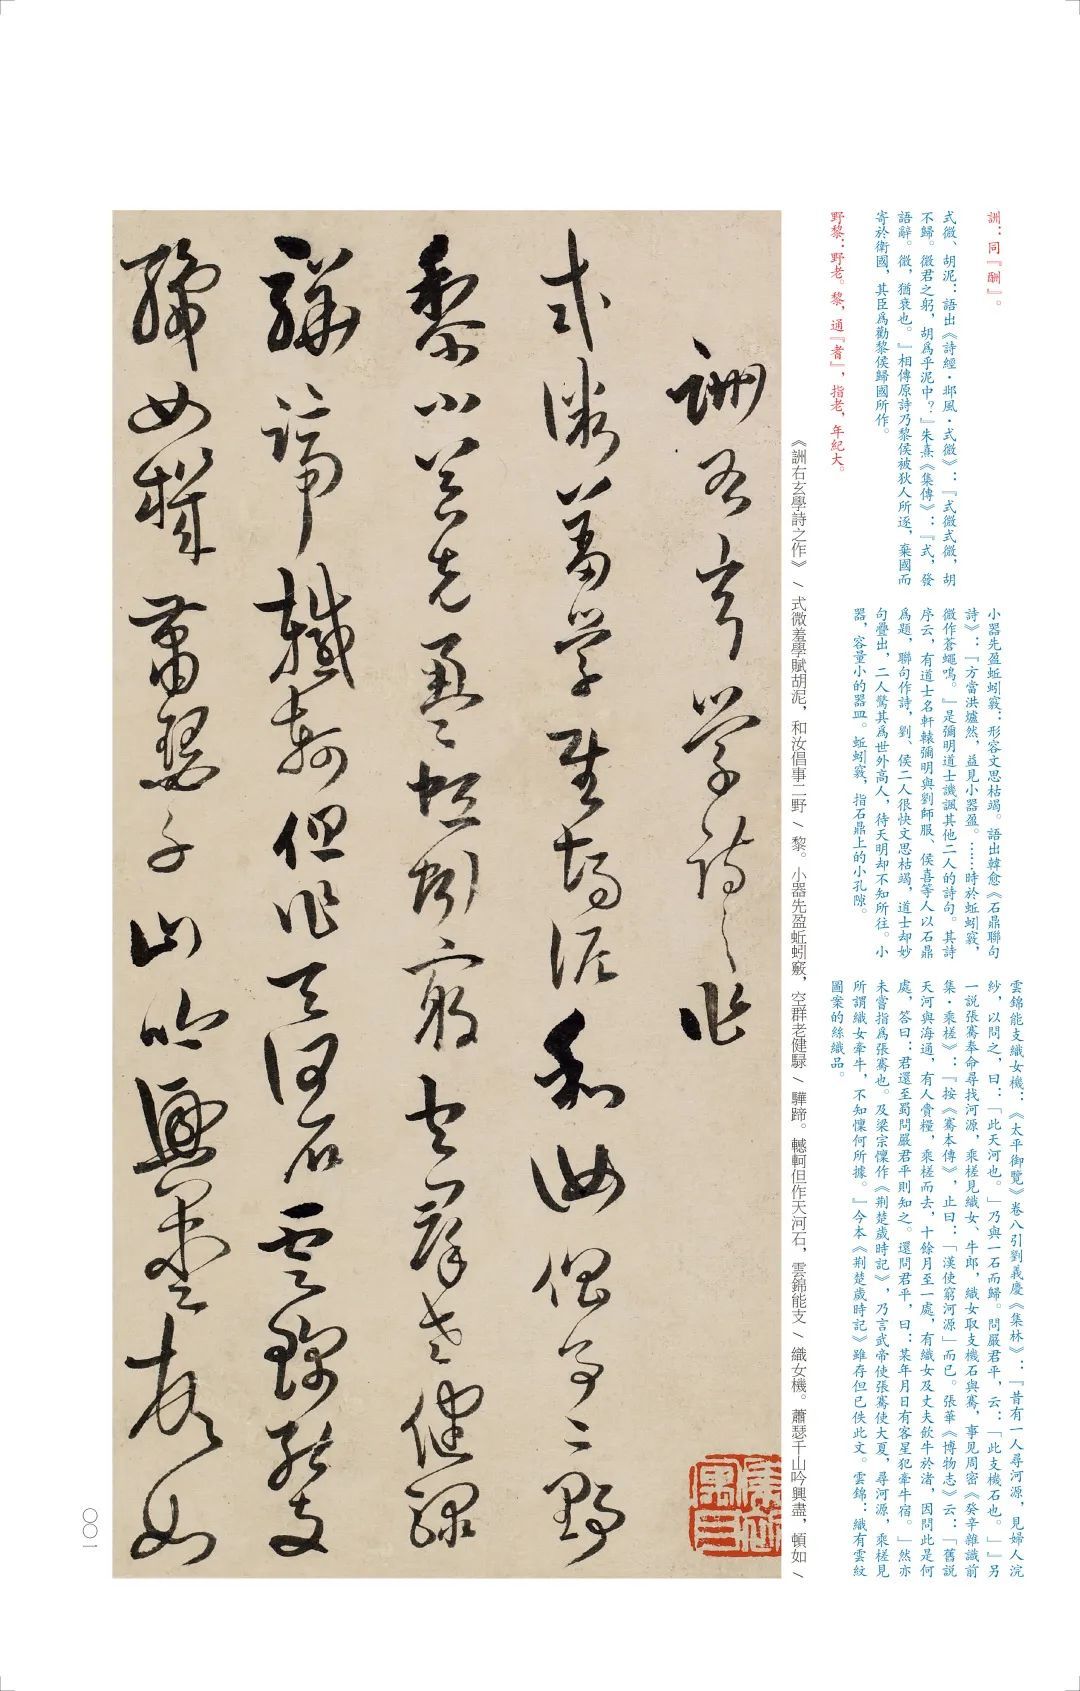 詶：同『酬』。
式微、胡泥：語出《詩經·邶風·式微》：『式微式微，胡
不歸。微君之躬，胡爲乎泥中？』朱熹《集傳》：『式，發
語辭。微，猶衰也。』相傳原詩乃黎侯被狄人所逐，棄國而
寄於衛國，其臣爲勸黎侯歸國所作。
野黎：野老。黎，通『耆』，指老，年紀大。
小器先盈蚯蚓竅：形容文思枯竭。語出韓愈《石鼎聯句
詩》：『方當洪爐然，益見小器盈。……時於蚯蚓竅，
微作蒼蠅鳴。』是彌明道士譏諷其他二人的詩句。其詩
序云，有道士名軒轅彌明與劉師服、侯喜等人以石鼎
爲題，聯句作詩，劉、侯二人很快文思枯竭，道士却妙
句疊出，二人驚其爲世外高人，待天明却不知所往。小
器，容量小的器皿。蚯蚓竅，指石鼎上的小孔隙。
雲錦能支織女機：《太平御覽》卷八引劉義慶《集林》：『昔有一人尋河源，見婦人浣
紗，以問之，曰：「此天河也。」乃與一石而歸。問嚴君平，云：「此支機石也。」』另
一説張騫奉命尋找河源，乘槎見織女、牛郎，織女取支機石與騫，事見周密《癸辛雜識前
集·乘槎》：『按《騫本傳》，止曰：「漢使窮河源」而已。張華《博物志》云：「舊説
天河與海通，有人賫糧，乘槎而去，十餘月至一處，有織女及丈夫飲牛於渚，因問此是何
處，答曰：君還至蜀問嚴君平則知之。還問君平，曰：某年月日有客星犯牽牛宿。」然亦
未嘗指爲張騫也。及梁宗懍作《荆楚歲時記》，乃言武帝使張騫使大夏，尋河源，乘槎見
所謂織女牽牛，不知懍何所據。』今本《荆楚歲時記》雖存但已佚此文。雲錦：織有雲紋
圖案的絲織品。
《詶右玄學詩之作》 / 式微羞學賦胡泥，和汝倡事二野 / 黎。小器先盈蚯蚓竅，空群老健騄 / 驊蹄。轗軻但作天河石，雲錦能支 / 織女機。蕭瑟千山吟興盡，頓如 /
詶右玄學詩之作
式微羞學賦胡泥和汝倡事二野
黎小器先盈蚯蚓竅空群老健騄
驊蹄轗軻但作天河石雲錦能支
織女機蕭瑟千山吟興盡頓如
〇〇一